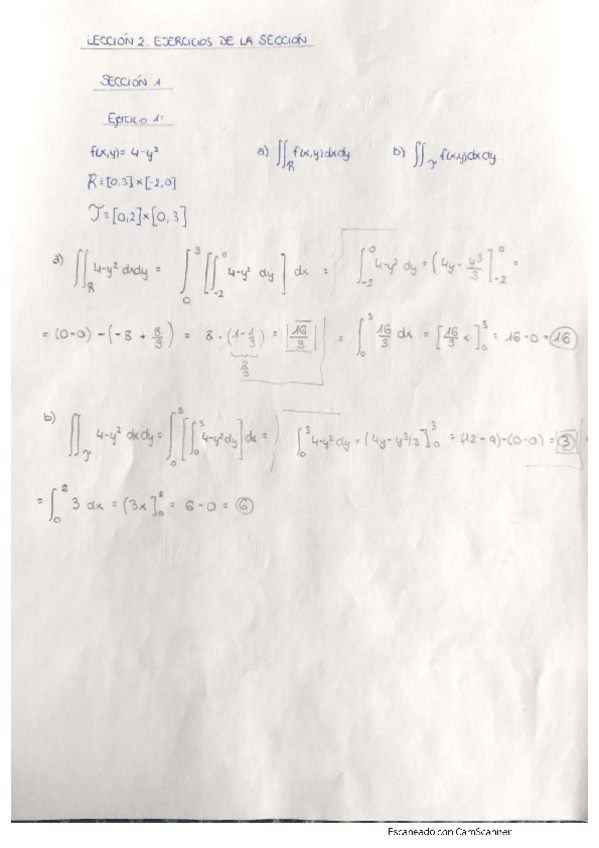 LECCIÓN 2. EJERCICIOS DE LA SECCIÓN
SECCIÓN 1
Ejercicio 1:
f(x,y) = 4-y² a) ∬_R f(x,y) dx dy b) ∬_T f(x,y) dx dy.
R = [0,3] × [-2,0]
T = [0,2] × [0,3]
a) ∬_R 4-y² dx dy = ∫_0^3 [∫_-2^0 4-y² dy] dx = ∫_-2^0 4-y² dy = (4y - y³/3]_-2^0 =
= (0-0) - (-8 + 8/3) = 8 · (1 - 1/3) = 16/3 = ∫_0^3 16/3 dx = [16/3 x]_0^3 = 16-0 = 16
2/3
b) ∬_T 4-y² dx dy = ∫_0^2 [∫_0^3 4-y² dy] dx = ∫_0^3 4-y² dy = (4y - y³/3]_0^3 = (12-9) - (0-0) = 3
= ∫_0^2 3 dx = (3x]_0^2 = 6-0 = 6
Escaneado con CamScanner